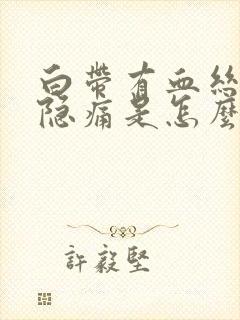 白带有血絲
隐痛是怎麼
許毅堅